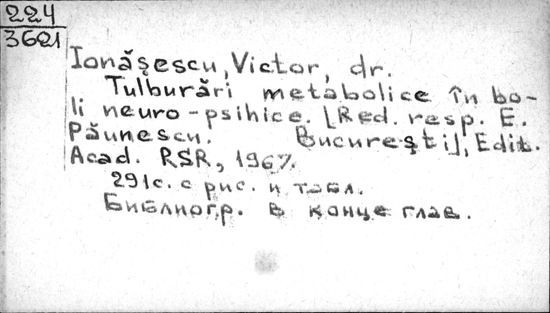 224
3621
Ionăşescu, Victor, dr.
Tulburări metabolice în bo-
li neuro-psihice. [Red. resp. E.
Păunescu. Bucureşti], Edit.
Acad. RSR, 1967.
291 с. с рис. и табл.
Библиогр. в конце глав.